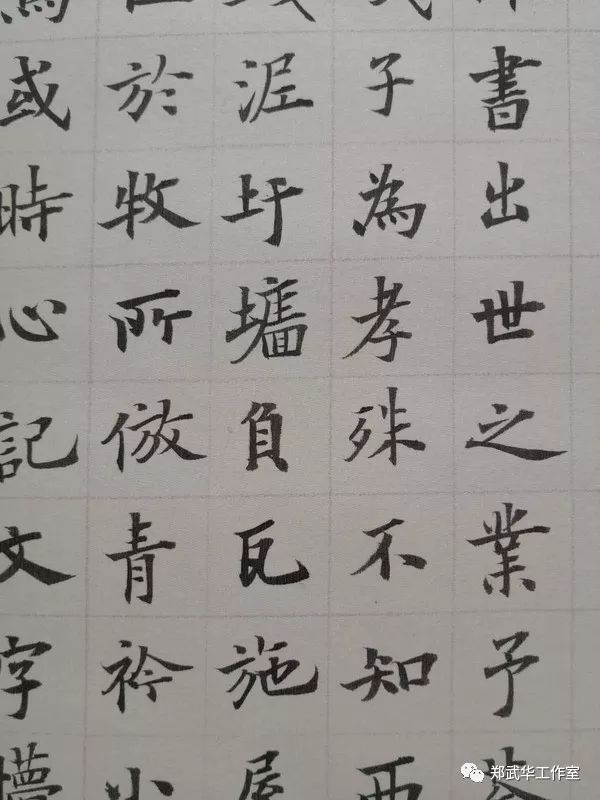 書出世之業予
子為孝殊不知西
涯圩墻負瓦施屋
於牧所倣青衿小
或時心記文字懵
郑武华工作室